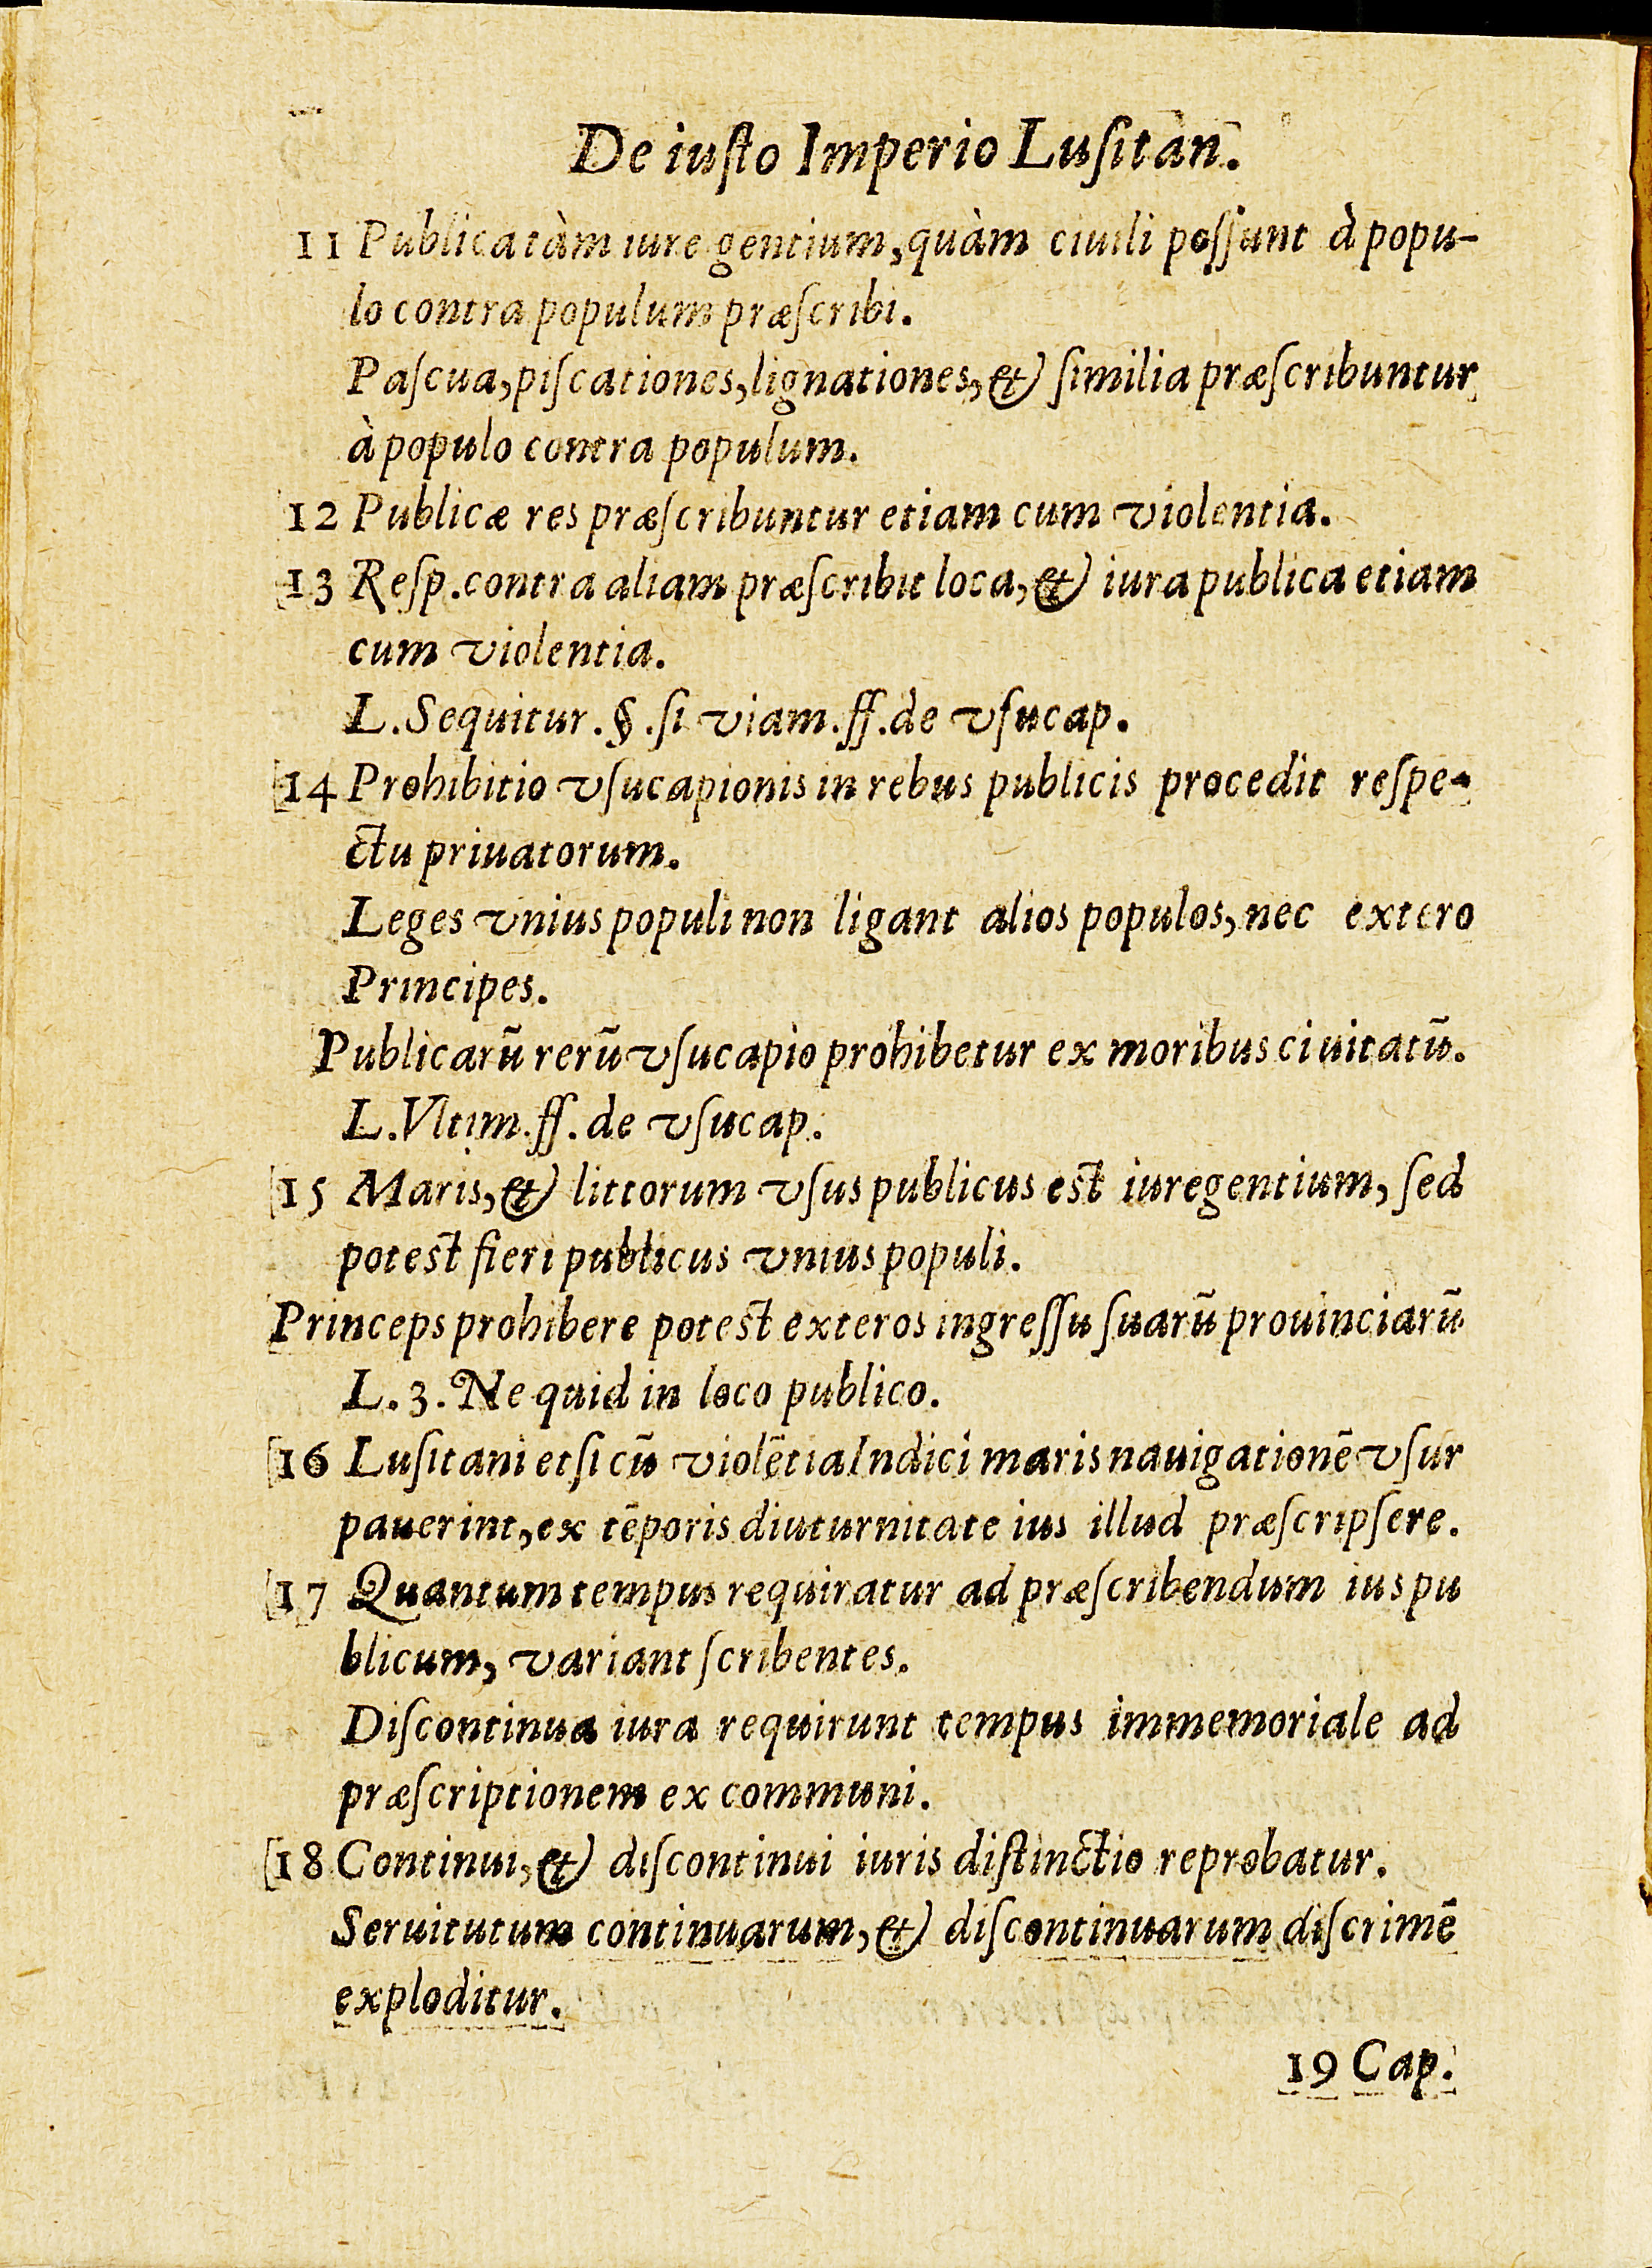 De iuſto Imperio Luſitan.
11 Publica tàm iure gentium, quàm ciuili poſſunt à popu-
lo contra populum præſcribi.
Paſcua, piſcationes, lignationes, & ſimilia præſcribuntur
à populo contra populum.
12 Publicæ res præſcribuntur etiam cum violentia.
13 Reſp. contra aliam præſcribit loca, & iura publica etiam
cum violentia.
L. Sequitur. §. ſi viam. ff. de vſucap.
14 Prohibitio vſucapionis in rebus publicis procedit reſpe-
ctu priuatorum.
Leges vnius populi non ligant alios populos, nec extero
Principes.
Publicarū rerū vſucapio prohibetur ex moribus ciuitatū.
L. Vltim. ff. de vſucap.
15 Maris, & littorum vſus publicus eſt iuregentium, ſed
poteſt fieri publicus vnius populi.
Princeps prohibere poteſt exteros ingreſſu ſuarū prouinciarū
L. 3. Ne quid in loco publico.
16 Luſitani etſi cū violētia Indici maris nauigationē vſur
pauerint, ex tēporis diuturnitate ius illud præſcripſere.
17 Quantum tempus requiratur ad præſcribendum ius pu
blicum, variant ſcribentes.
Diſcontinua iura requirunt tempus immemoriale ad
præſcriptionem ex communi.
18 Continui, & diſcontinui iuris diſtinctio reprobatur.
Seruitutum continuarum, & diſcontinuarum diſcrimē
exploditur.
19 Cap.